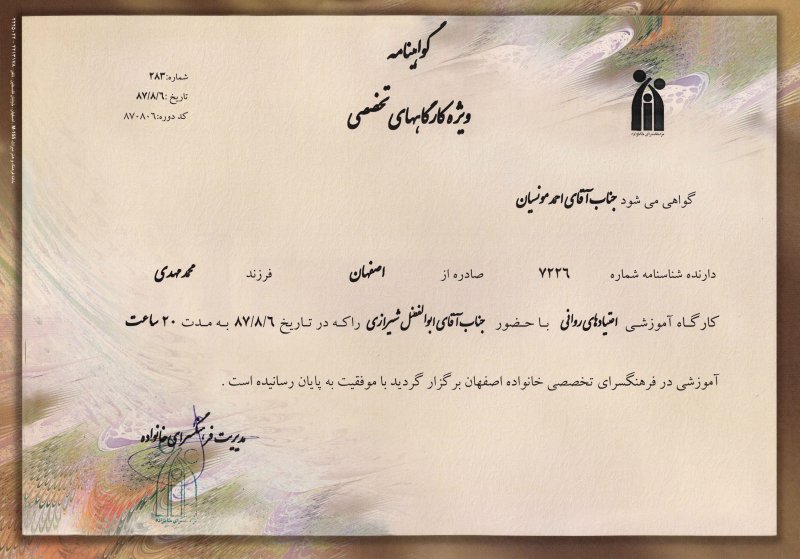 گواهینامه
ویژه کارگاههای تخصصی
شماره: ۲۸۳
تاریخ: ۸۷/۸/۶
کد دوره: ۸۷۰۸۰۶
فرهنگسرای خانواده
گواهی می شود جناب آقای احمد مونسیان
دارنده شناسنامه شماره ۷۲۲۶ صادره از اصفهان فرزند محمد مهدی
کارگاه آموزشی اعتیادهای روانی با حضور جناب آقای ابوالفضل شیرازی راکه در تاریخ ۸۷/۸/۶ به مدت ۲۰ ساعت
آموزشی در فرهنگسرای تخصصی خانواده اصفهان برگزار گردید با موفقیت به پایان رسانیده است .
مدیریت فرهنگسرای خانواده
فرهنگسرای خانواده